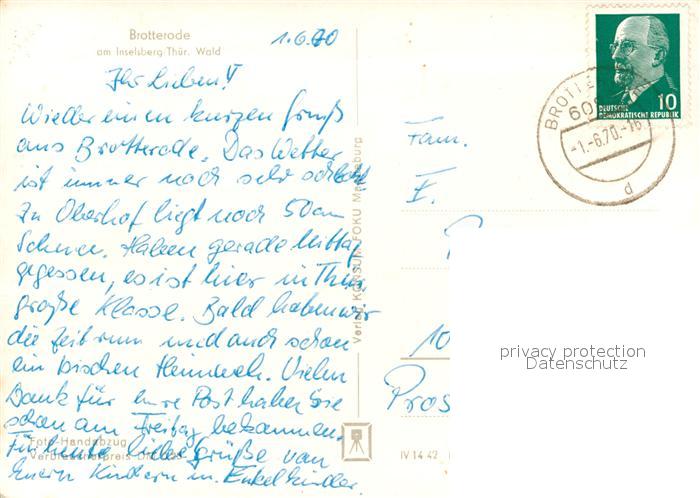 Brotterode
am Inselsberg/Thür. Wald
1.6.70
Ihr Lieben!
Wieder einen kurzen Gruß
aus Brotterode. Das Wetter
ist immer noch sehr schlecht.
In Oberhof liegt noch 50 cm
Schnee. Haben gerade Mittag
gegessen, es ist hier in Thür.
große Klasse. Bald haben wir
die Zeit rum und auch schon
ein bischen Heimweh. Vielen
Dank für eure Post haben Sie
schon am Freitag bekommen.
Für heute liebe Grüße von
Euern Kindern u. Enkelkinder.
Foto-Handabzug
Verbraucherpreis
Verlag KONSUM-FOKU Magdeburg
IV 14 42
DEUTSCHE
DEMOKRATISCHE REPUBLIK
10
BROTTE
-1.-6.70.-16
d
Fam.
F.
10
Pros
privacy protection
Datenschutz